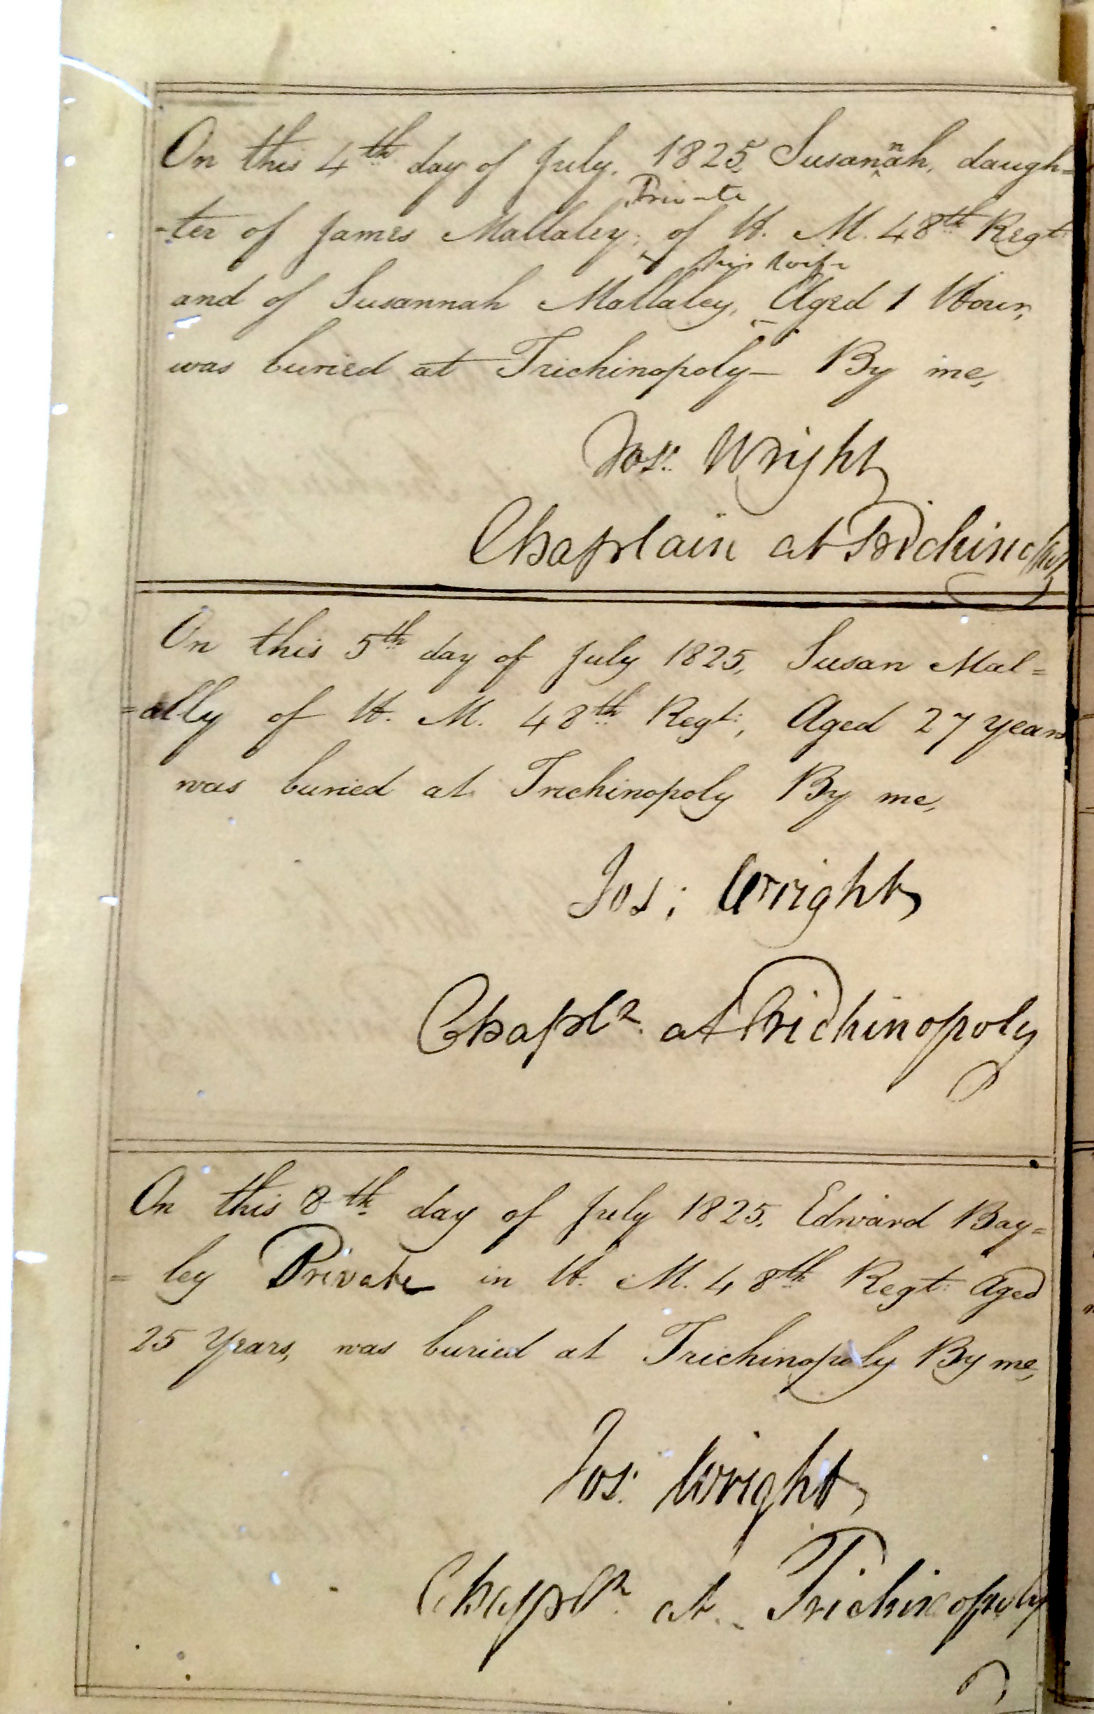 On this 4th day of July. 1825, Susannah, daugh=
-ter of James Mallaley, Private of H. M. 48th Regt
and of Susannah Mallaley, his wife Aged 1 Hour,
was buried at Trichinopoly— By me,
Jos: Wright
Chaplain at Trichinopoly
On this 5th day of July 1825, Susan Mal=
=ally of H. M. 48th Regt:, Aged 27 years
was buried at Trichinopoly By me,
Jos: Wright
Chapln. at Trichinopoly
On this 8th day of July 1825, Edward Bay=
=ley Private in H. M. 48th Regt: Aged
25 Years, was buried at Trichinopoly By me,
Jos: Wright
Chapln. at Trichinopoly